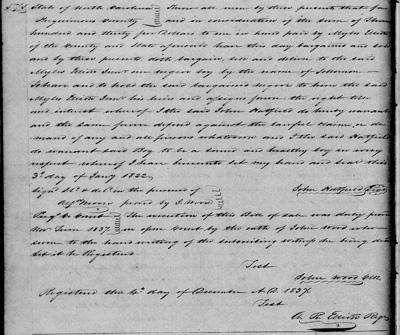 State of North Carolina Know all men by these presents that for
Perquimons County and in consideration of the sum of Three
hundred and thirty five dollars to me in hand paid by Myles Elliott
of the County and State aforesaid have this day bargained and sold
and by these presents doth bargain, sell and deliver to the said
Myles Elliott Junr one negro boy by the name of Solomon
To have and to hold the said bargained negro to him the said
Myles Elliott Junr his heirs and assigns from the right title
and interest whereof I the said John Hatfield do hereby warrant
and the same forever defend against the lawful claims or de-
mands of any and all persons whatsoever and I the said Hatfield
do warrant said Boy to be a sound and healthy boy in every
respect whereof I have hereunto set my hand and seal this
3d day of Jany 1832
Signd Sld & d in the presence of John Hatfield
proved by J. Wood
Perqs Co Court The execution of this Bill of sale was duly proven
Nov Term 1837 in open Court by the oath of John Wood who
swore to the hand writing of the subscribing witness he being dead
Let it be Registered
Test
John Wood Clk
Registered the 4th day of December A.D. 1837
Test